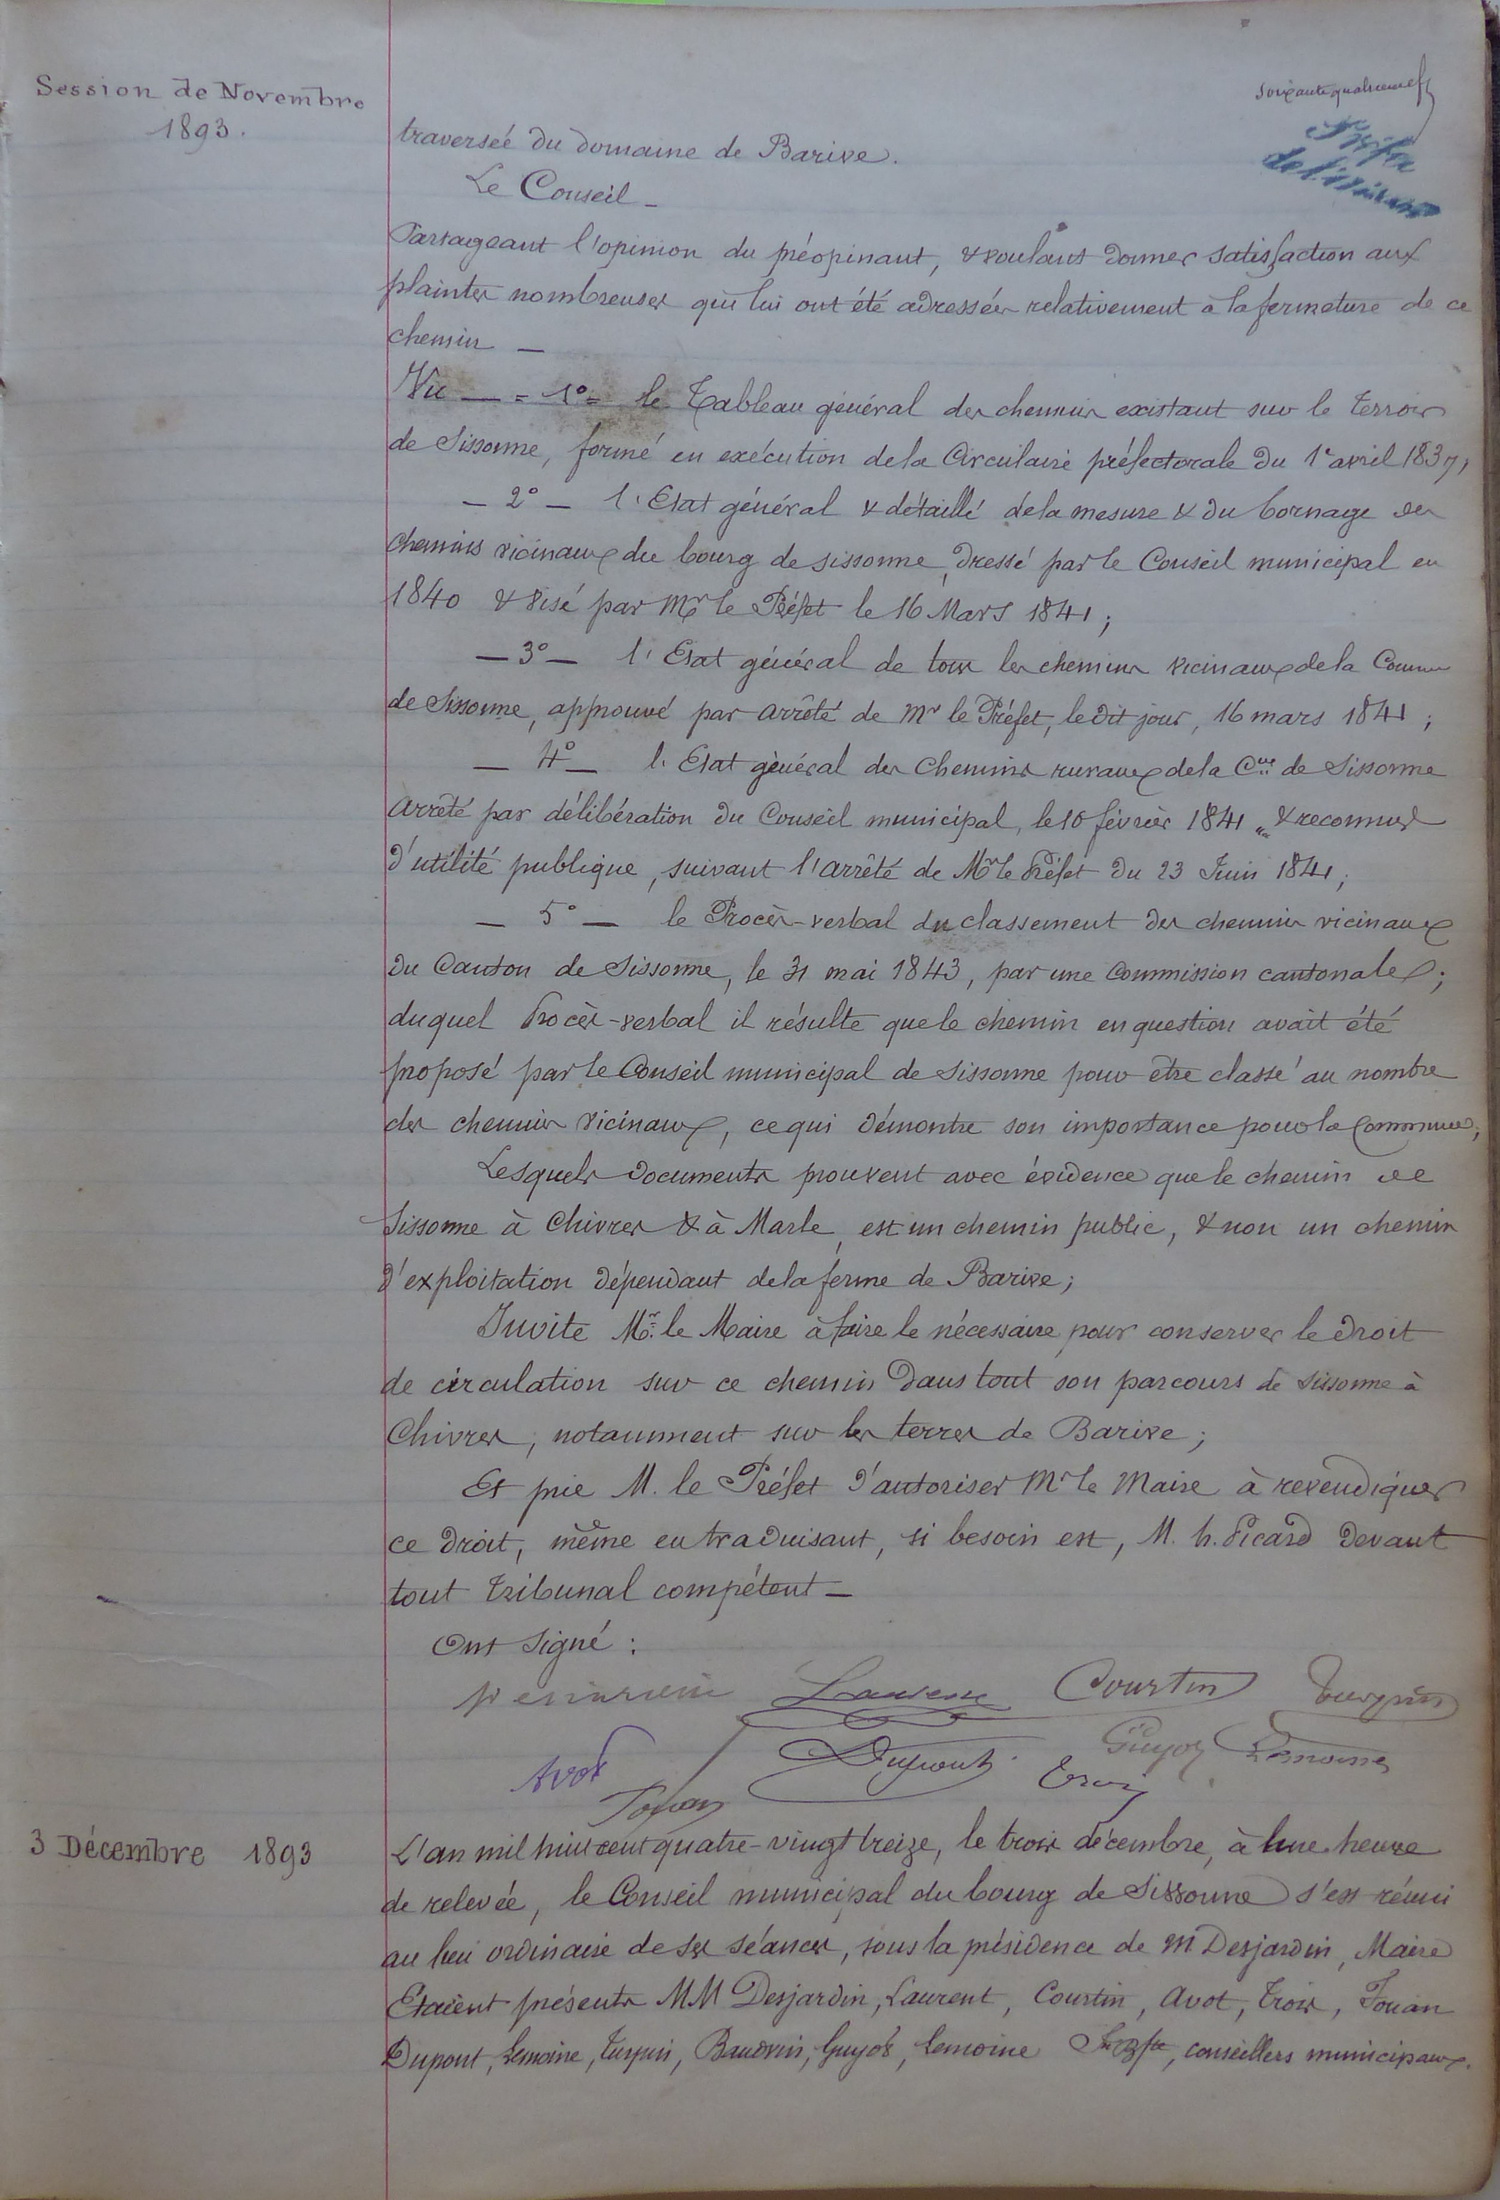 Session de Novembre
1893.
soixante quatrième
Préfre
de l'Aisne
traverseé du domaine de Barive.
Le Conseil _
Partageant l'opinion du préopinant, & voulant donner satisfaction aux
plaintes nombreuses qui lui ont été adressées relativement à la fermeture de ce
chemin _
Vu — = 1° = le Tableau général des chemins existant sur le terroir
de Sissonne, formé en exécution de la Circulaire préfectorale du 1er avril 1837,
— 2° — l'Etat général & détaillé de la mesure & du bornage des
chemins vicinaux du bourg de Sissonne, dressé par le Conseil municipal en
1840 & visé par Mr le Préfet le 16 Mars 1841 ;
— 3° — l'Etat général de tous les chemins vicinaux de la Commune
de Sissonne, approuvé par arrêté de Mr le Préfet, le dit jour, 16 mars 1841 ;
— 4° — l'Etat général des Chemins ruraux de la Cne de Sissonne
arrêté par délibération du Conseil municipal, le 10 février 1841 „ & reconnus
d'utilité publique, suivant l'arrêté de Mr le Préfet du 23 Juin 1841 ;
— 5° — le Procès-verbal du classement des chemins vicinaux
du Canton de Sissonne, le 31 mai 1843, par une Commission cantonale ;
duquel Procès-verbal il résulte que le chemin en question avait été
proposé par le Conseil municipal de Sissonne pour être classé au nombre
des chemins vicinaux, ce qui démontre son importance pour la Commune ;
Lesquels documents prouvent avec évidence que le chemin de
Sissonne à Chivres & à Marle, est un chemin public, & non un chemin
d'exploitation dépendant de la ferme de Barive ;
Invite Mr le Maire à faire le nécessaire pour conserver le droit
de circulation sur ce chemin dans tout son parcours de Sissonne à
Chivres, notamment sur les terres de Barive ;
Et prie M. le Préfet d'autoriser Mr le Maire à revendiquer
ce droit, même en traduisant, si besoin est, M. h. Picard devant
tout tribunal compétent _
Ont signé :
Laurent Courtin Turpin
Avot Dupont Guyot Lemoine
Fouan Trois
3 Décembre 1893
L'an mil huit cent quatre-vingt treize, le trois décembre, à une heure
de relevée, le Conseil municipal du bourg de Sissonne s'est réuni
au lieu ordinaire de ses séances, sous la présidence de M Desjardin, Maire
Etaient présents MM Desjardin, Laurent, Courtin, Avot, Trois, Fouan
Dupont, Lemoine, Turpin, Baudrin, Guyot, Lemoine , conseillers municipaux.